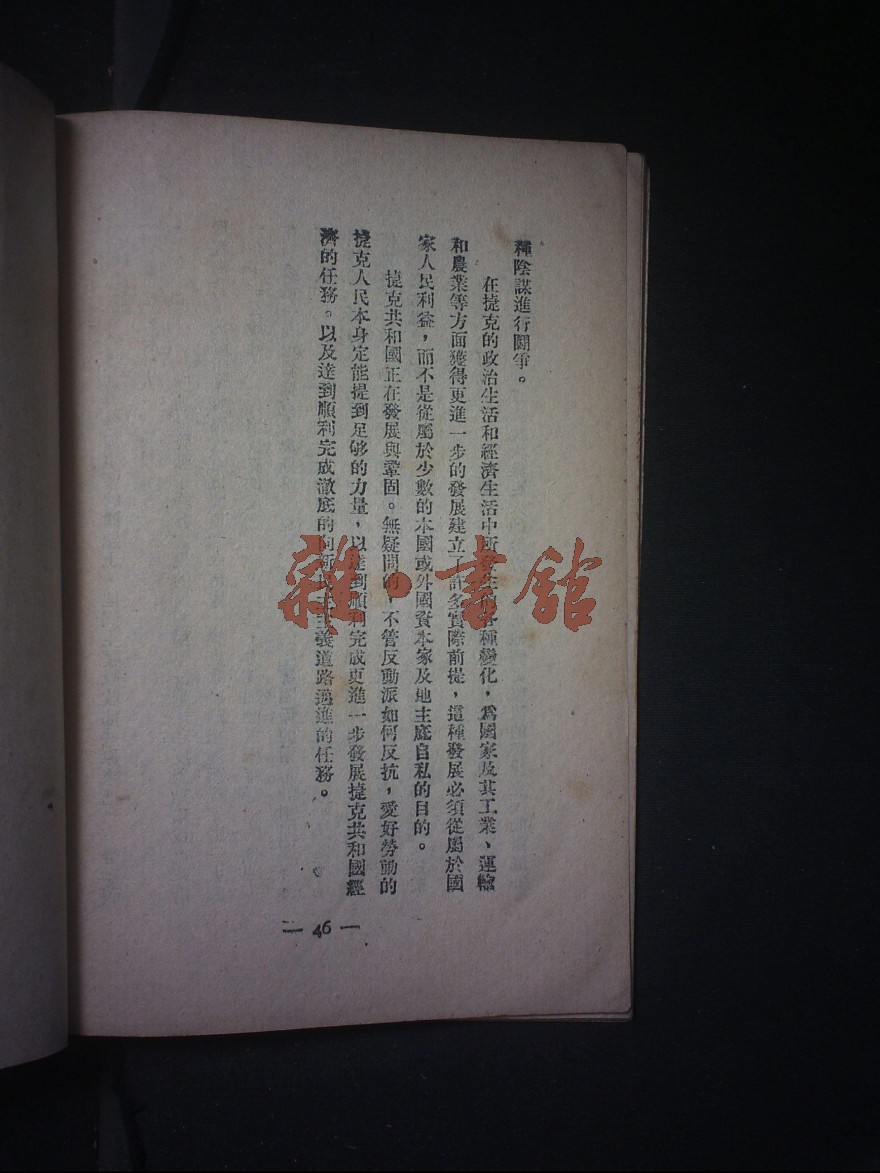 種陰謀進行鬪爭。
在捷克的政治生活和經濟生活中所發生的各種變化，爲國家及其工業、運輸
和農業等方面獲得更進一步的發展建立了許多實際前提，這種發展必須從屬於國
家人民利益，而不是從屬於少數的本國或外國資本家及地主底自私的目的。
捷克共和國正在發展與鞏固。無疑問的，不管反動派如何反抗，愛好勞動的
捷克人民本身定能提到足够的力量，以達到順利完成更進一步發展捷克共和國經
濟的任務。以及達到順利完成澈底的向新民主主義道路邁進的任務。
— 46 —
雜·書館